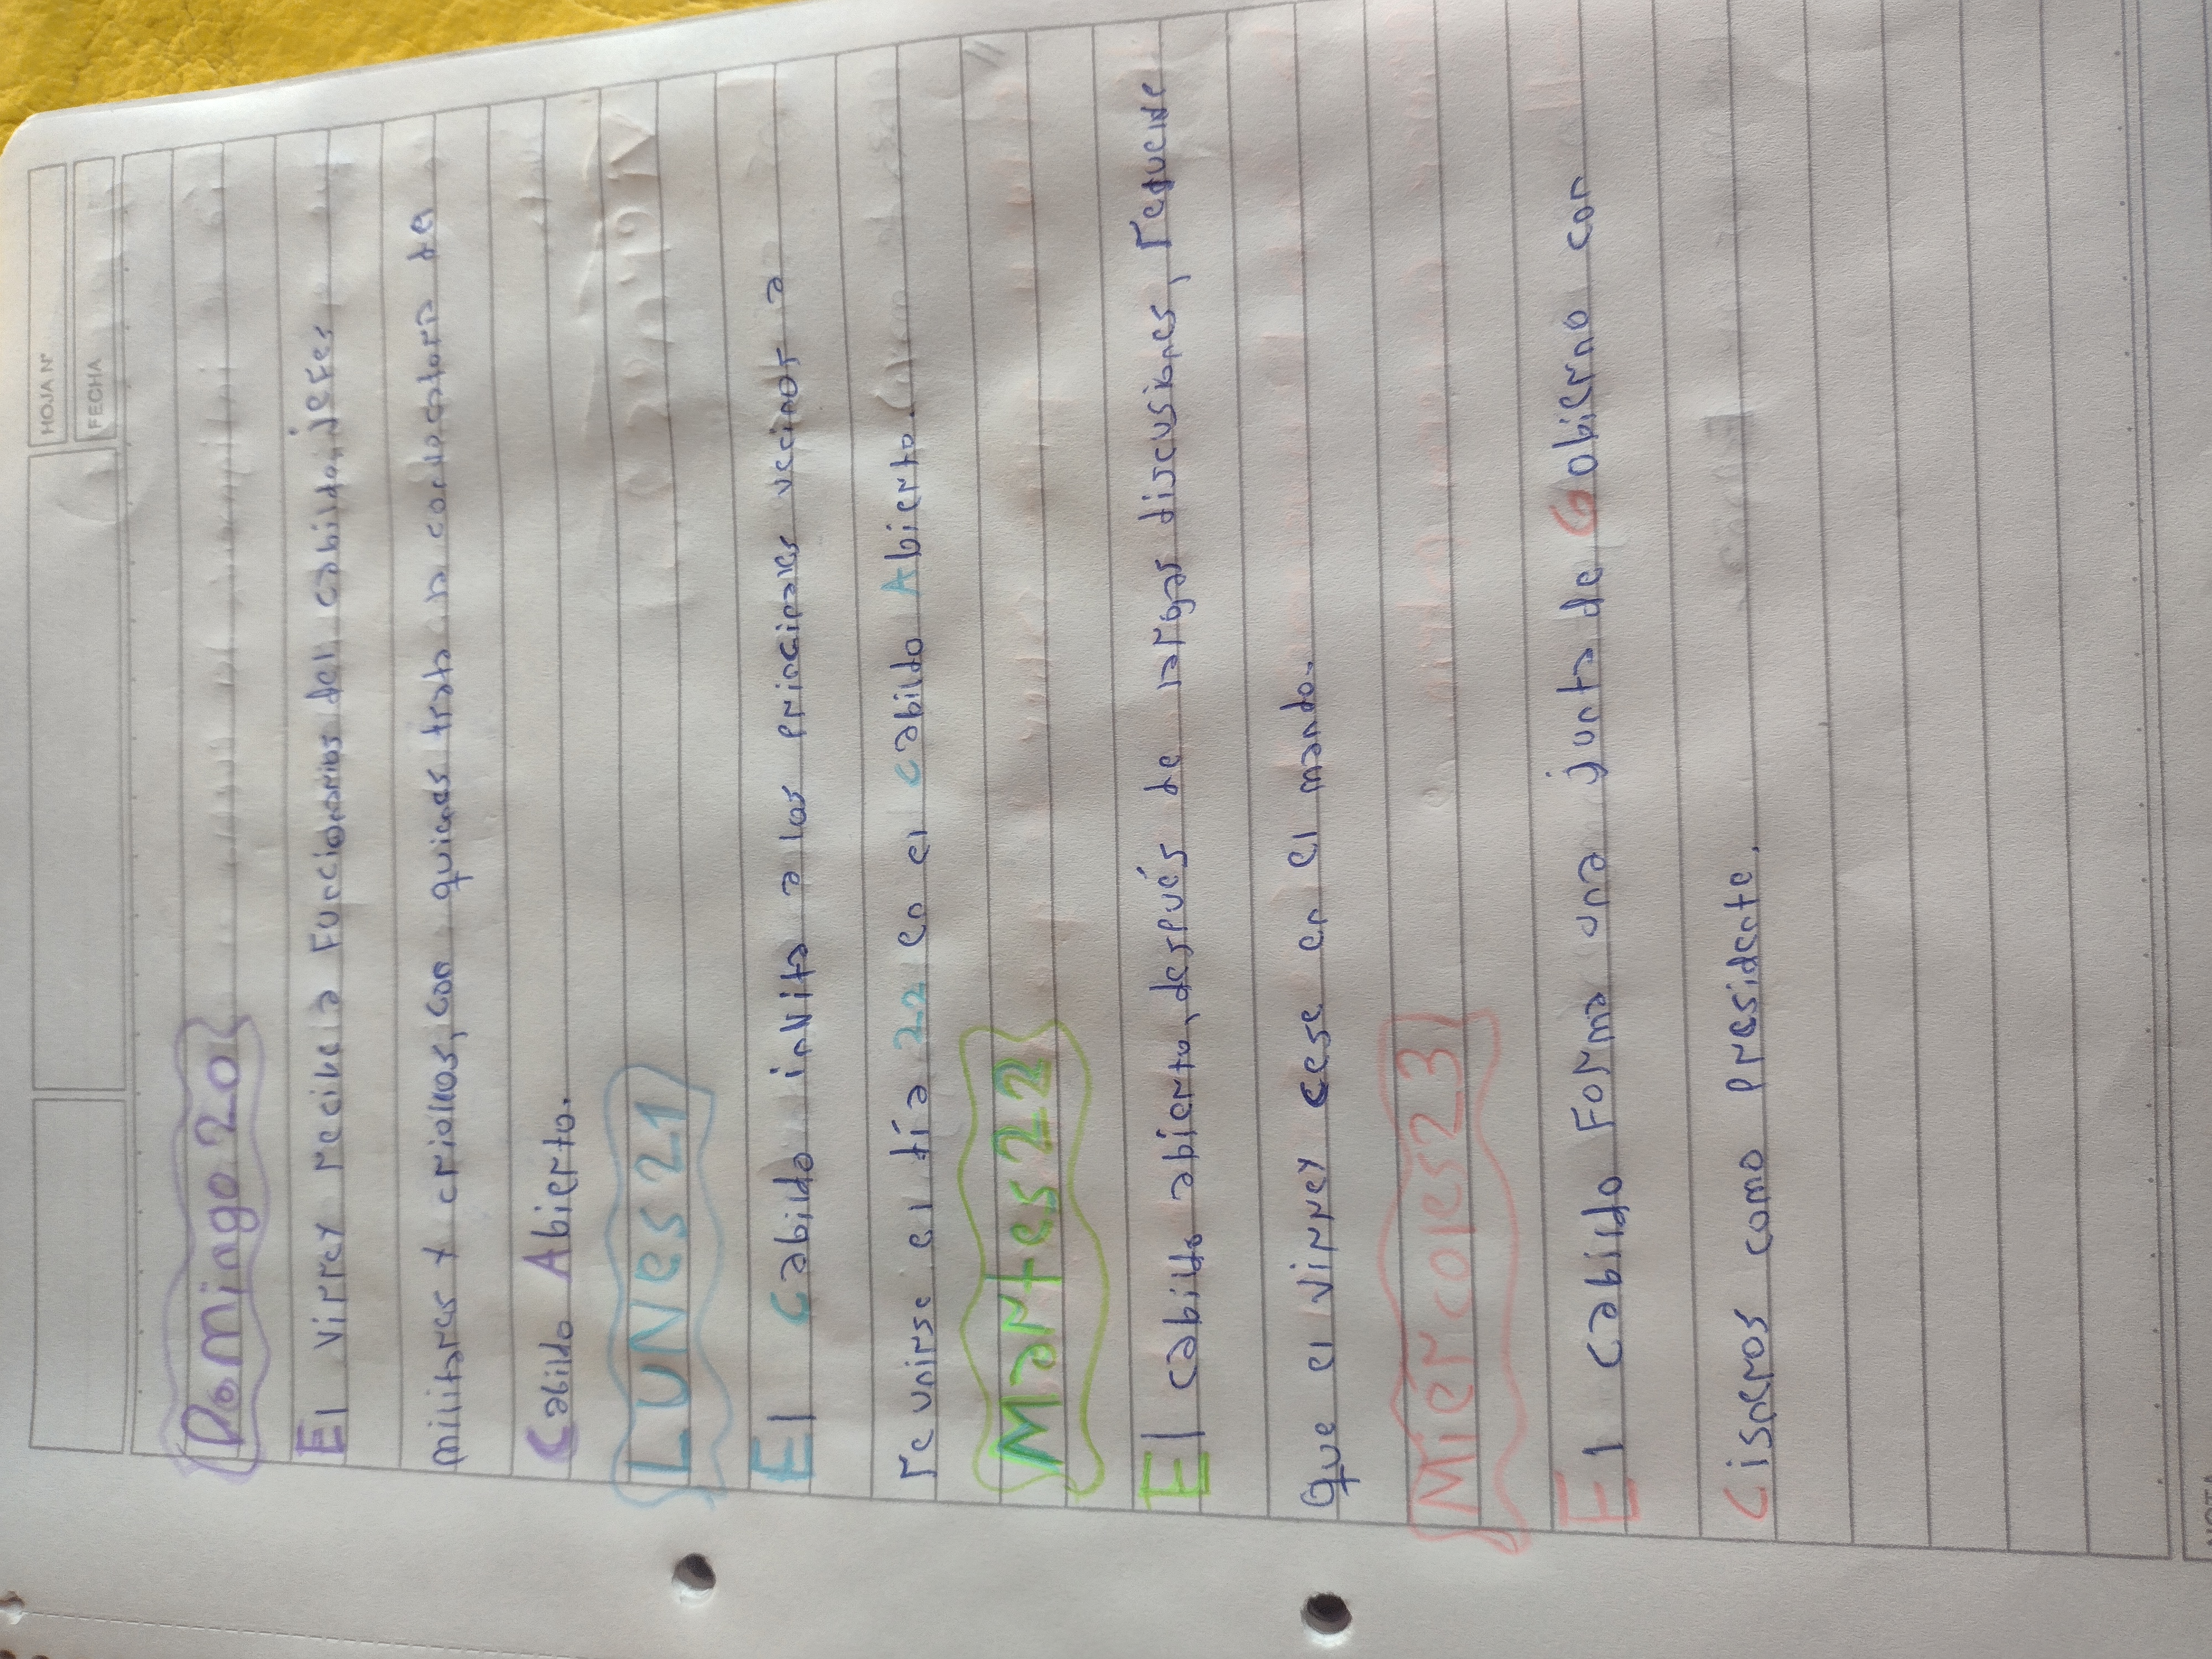 HOJA Nº
FECHA
Domingo 20
El virrey recibe a Funcionarios del cabildo, jefes
militares y criollos, con quienes trata la convocatoria de
Cabildo Abierto.
LUNes 21
El Cabildo invita a los principales vecinos a
reunirse el día 22 en el Cabildo Abierto.
Martes 22
El cabildo abierto, después de largas discusiones, requiere
que el virrey cese en el mando.
Miercoles 23
El Cabildo Forma una junta de Gobierno con
Cisneros como presidente.